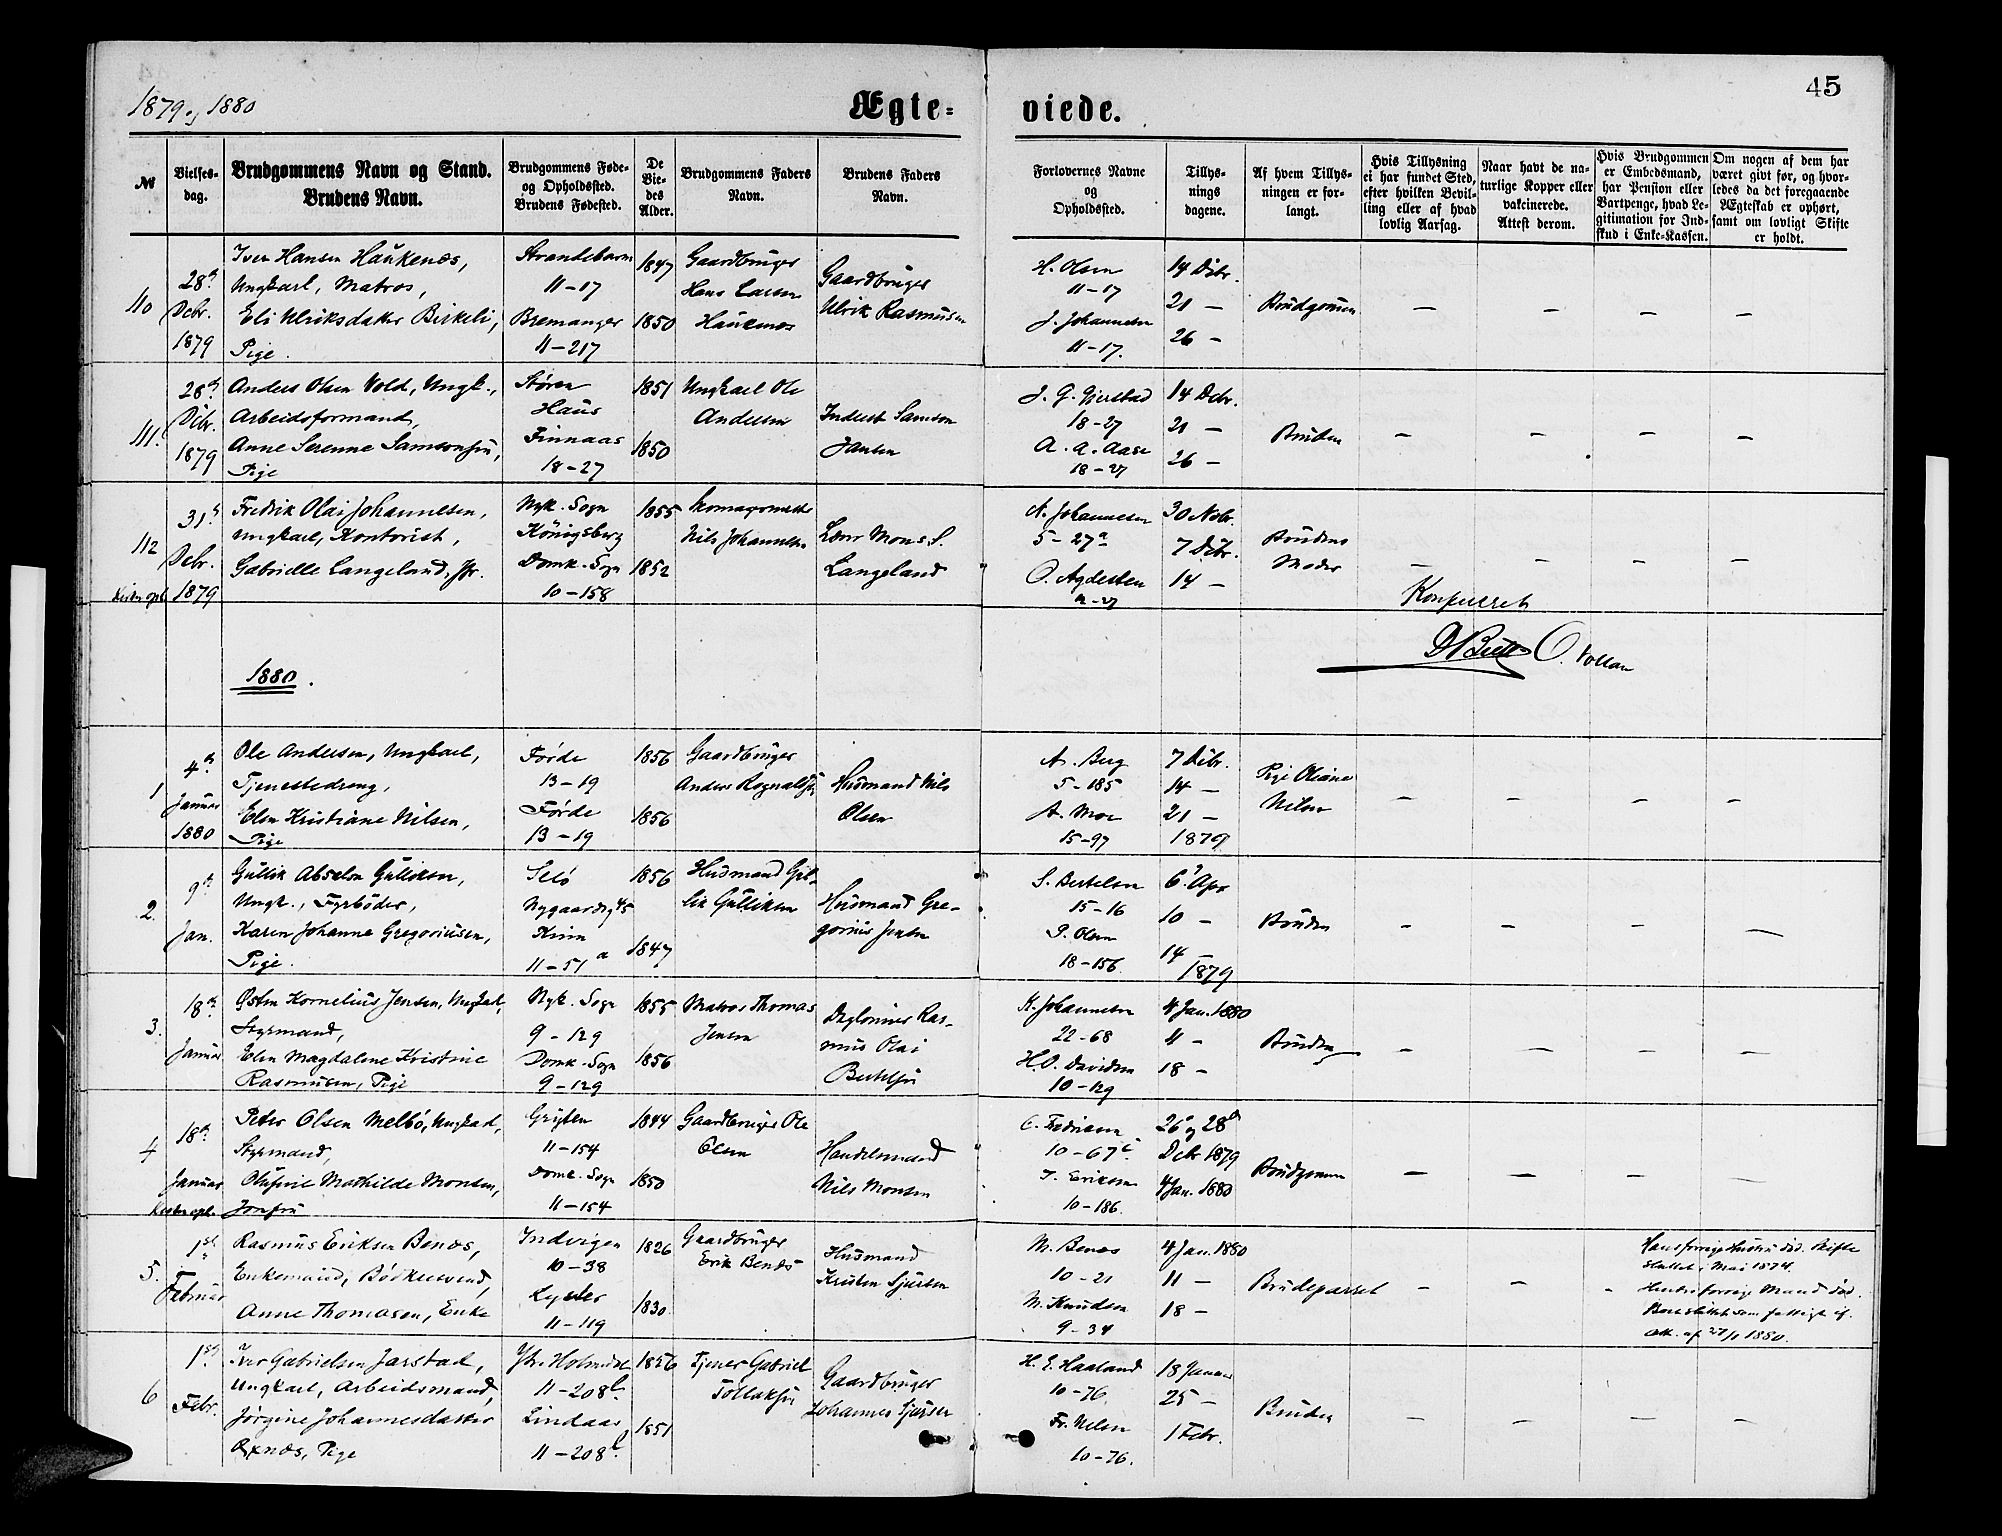 45
1879 og 1880
Ægte-
viede.
№
Vielses-
dag.
Brudgommens Navn og Stand.
Brudens Navn.
Brudgommens Føde-
og Opholdssted.
Brudens Fødested.
De
Vie-
des
Alder.
Brudgommens Faders
Navn.
Brudens Faders
Navn.
Forlovernes Navne
og
Opholdssted.
Tillys-
nings
dagene.
Af hvem Tillys-
ningen er for-
langt.
Hvis Tillysning
ei har fundet Sted,
efter hvilken Bevil-
ling eller af hvad
lovlig Aarsag.
Naar havt de na-
turlige Kopper eller
vakcinerede.
Attest derom.
Hvis Brudgommen
er Embedsmand,
har Pension eller
Vartpenge, hvad Le-
gitimation for Ind-
skud i Enke-Kassen.
Om nogen af dem har
været givt før, og hvor-
ledes da det foregaaende
Ægteskab er ophørt,
samt om lovligt Skifte
er holdt.
110
28de
Dcbr.
1879
Iver Hansen Haukenæs,
Ungkarl, Matros,
Eli Ulriksdatter Birkeli,
Pige.
Strandebarm
11-17
Bremanger
11-217
1847
1850
Gaardbruger
Hans Larsen
Haukenæs
Gaardbruger
Ulrik Rasmusen
H. Olsen
11-17
J. Johannesen
11-17.
14 Dcbr.
21 —
26 —
Brudgommen
111.
28de
Dcbr.
1879
Anders Olsen Vold, Ungk.,
Arbeidsformand,
Anne Serenne Samsonsen,
Pige
Støren
Haus
Finnaas
18-27
1851
1850
Ungkarl Ole
Andersen
Inderst Samson
Jansen
J. G. Gjerstad
18-27
A. A. Aase
18-27
14 Dcbr.
21 —
26 —
Bruden
112
31te
Dcbr.
1879
Fredrik Olai Johannesen,
Ungkarl, Kontorist,
Gabrielle Langeland, Jfr.
Nyk. Sogn
Königsberg
Domk. Sogn
10-158
1855
1852
Skomagermester
Nils Johannesen
Lensm. Mons S.
Langeland
N. Johannesen
5-27a
O. Agdesten
2-27
30 Nobr.
7 Dcbr.
14 —
Brudens
Moder
Konfereret
1880.
1
4de
Januar
1880
Ole Andersen, Ungkarl,
Tjenestedreng,
Elen Kristiane Nilsen,
Pige
Førde
13-19
Førde
13-19
1856
1856
Gaardbruger
Anders Rognaldsen
Husmand Nils
Olsen
A. Berg
5-185
A. Moe
15-97
7 Dcbr.
14 —
21 —
1879
Pige Oliane
Nilsen
2.
9de
Jan.
Gullik Absalon Gulliksen,
Ungk., Fyrbøder,
Karen Johanne Gregoriusen,
Pige.
Selø
Nygaardsg 45
Kinn
11-51a
1856
1847
Husmand Gul-
lik Gulliksen
Husmand Gre-
gorius Jensen
S. Bertelsen
15-16
P. Olsen
18-156
6' Apr
10 —
14
1879
Bruden
3.
18de
Januar
Østen Kornelius Jensen, Ungkarl,
Styrmand,
Elen Magdalene Kristine
Rasmusen, Pige
Nyk. Sogn
9-129
Domk. Sogn
9-129
1855
1856
Matros Thomas
Jensen
Daglønner Ras-
mus Olai
Bertelsen
K. Johannesen
22-68
H. O. Davidsen
10-129
4 Jan. 1880
11 -
18 -
Bruden
4
18de
Januar
Peter Olsen Melbø, Ungkarl,
Styrmand,
Olufine Mathilde Monsen,
Jomfru
Gryten
11-154
Domk. Sogn
11-154
1844
1850
Gaardbruger Ole
Olsen
Handelsmand
Nils Monsen
10-67c
J. Eriksen
10-186.
26 og 28de
Dcbr 1879
4 Jan. 1880
Brudgommen
5.
1ste
Februar
Rasmus Eriksen Benæs,
Enkemand, Bødkersvend,
Anne Thomasen, Enke
Indvigen
10-38
Lyster
11-119
1826
1830.
Gaardbruger
Erik Benæs
Husmand
Kristen Sjursen
M. Benæs
10-21
M. Knudsen
9-34
4 Jan. 1880
11 —
18 —
Brudeparret
Hans forrige Hustru død. Skifte
sluttet i Mai 1874.
Hendes forrige Mand død.
Bort sluttet som fattigt if.
att. af 27/1 1880.
6
1ste
Febr.
Iver Gabrielsen Jarstad,
Ungkarl, Arbeidsmand,
Jørgine Johannesdatter
Oxnæs, Pige
Ytr. Holmedal
11-208b.
Lindaas
11-208b.
1856
1851
Tjener Gabriel
Tollaksen
Gaardbruger
Johannes Sjursen
H. E. Haaland
10-76.
Fr. Nilsen
10-76.
18 Januar
25 —
1 Febr.
Bruden